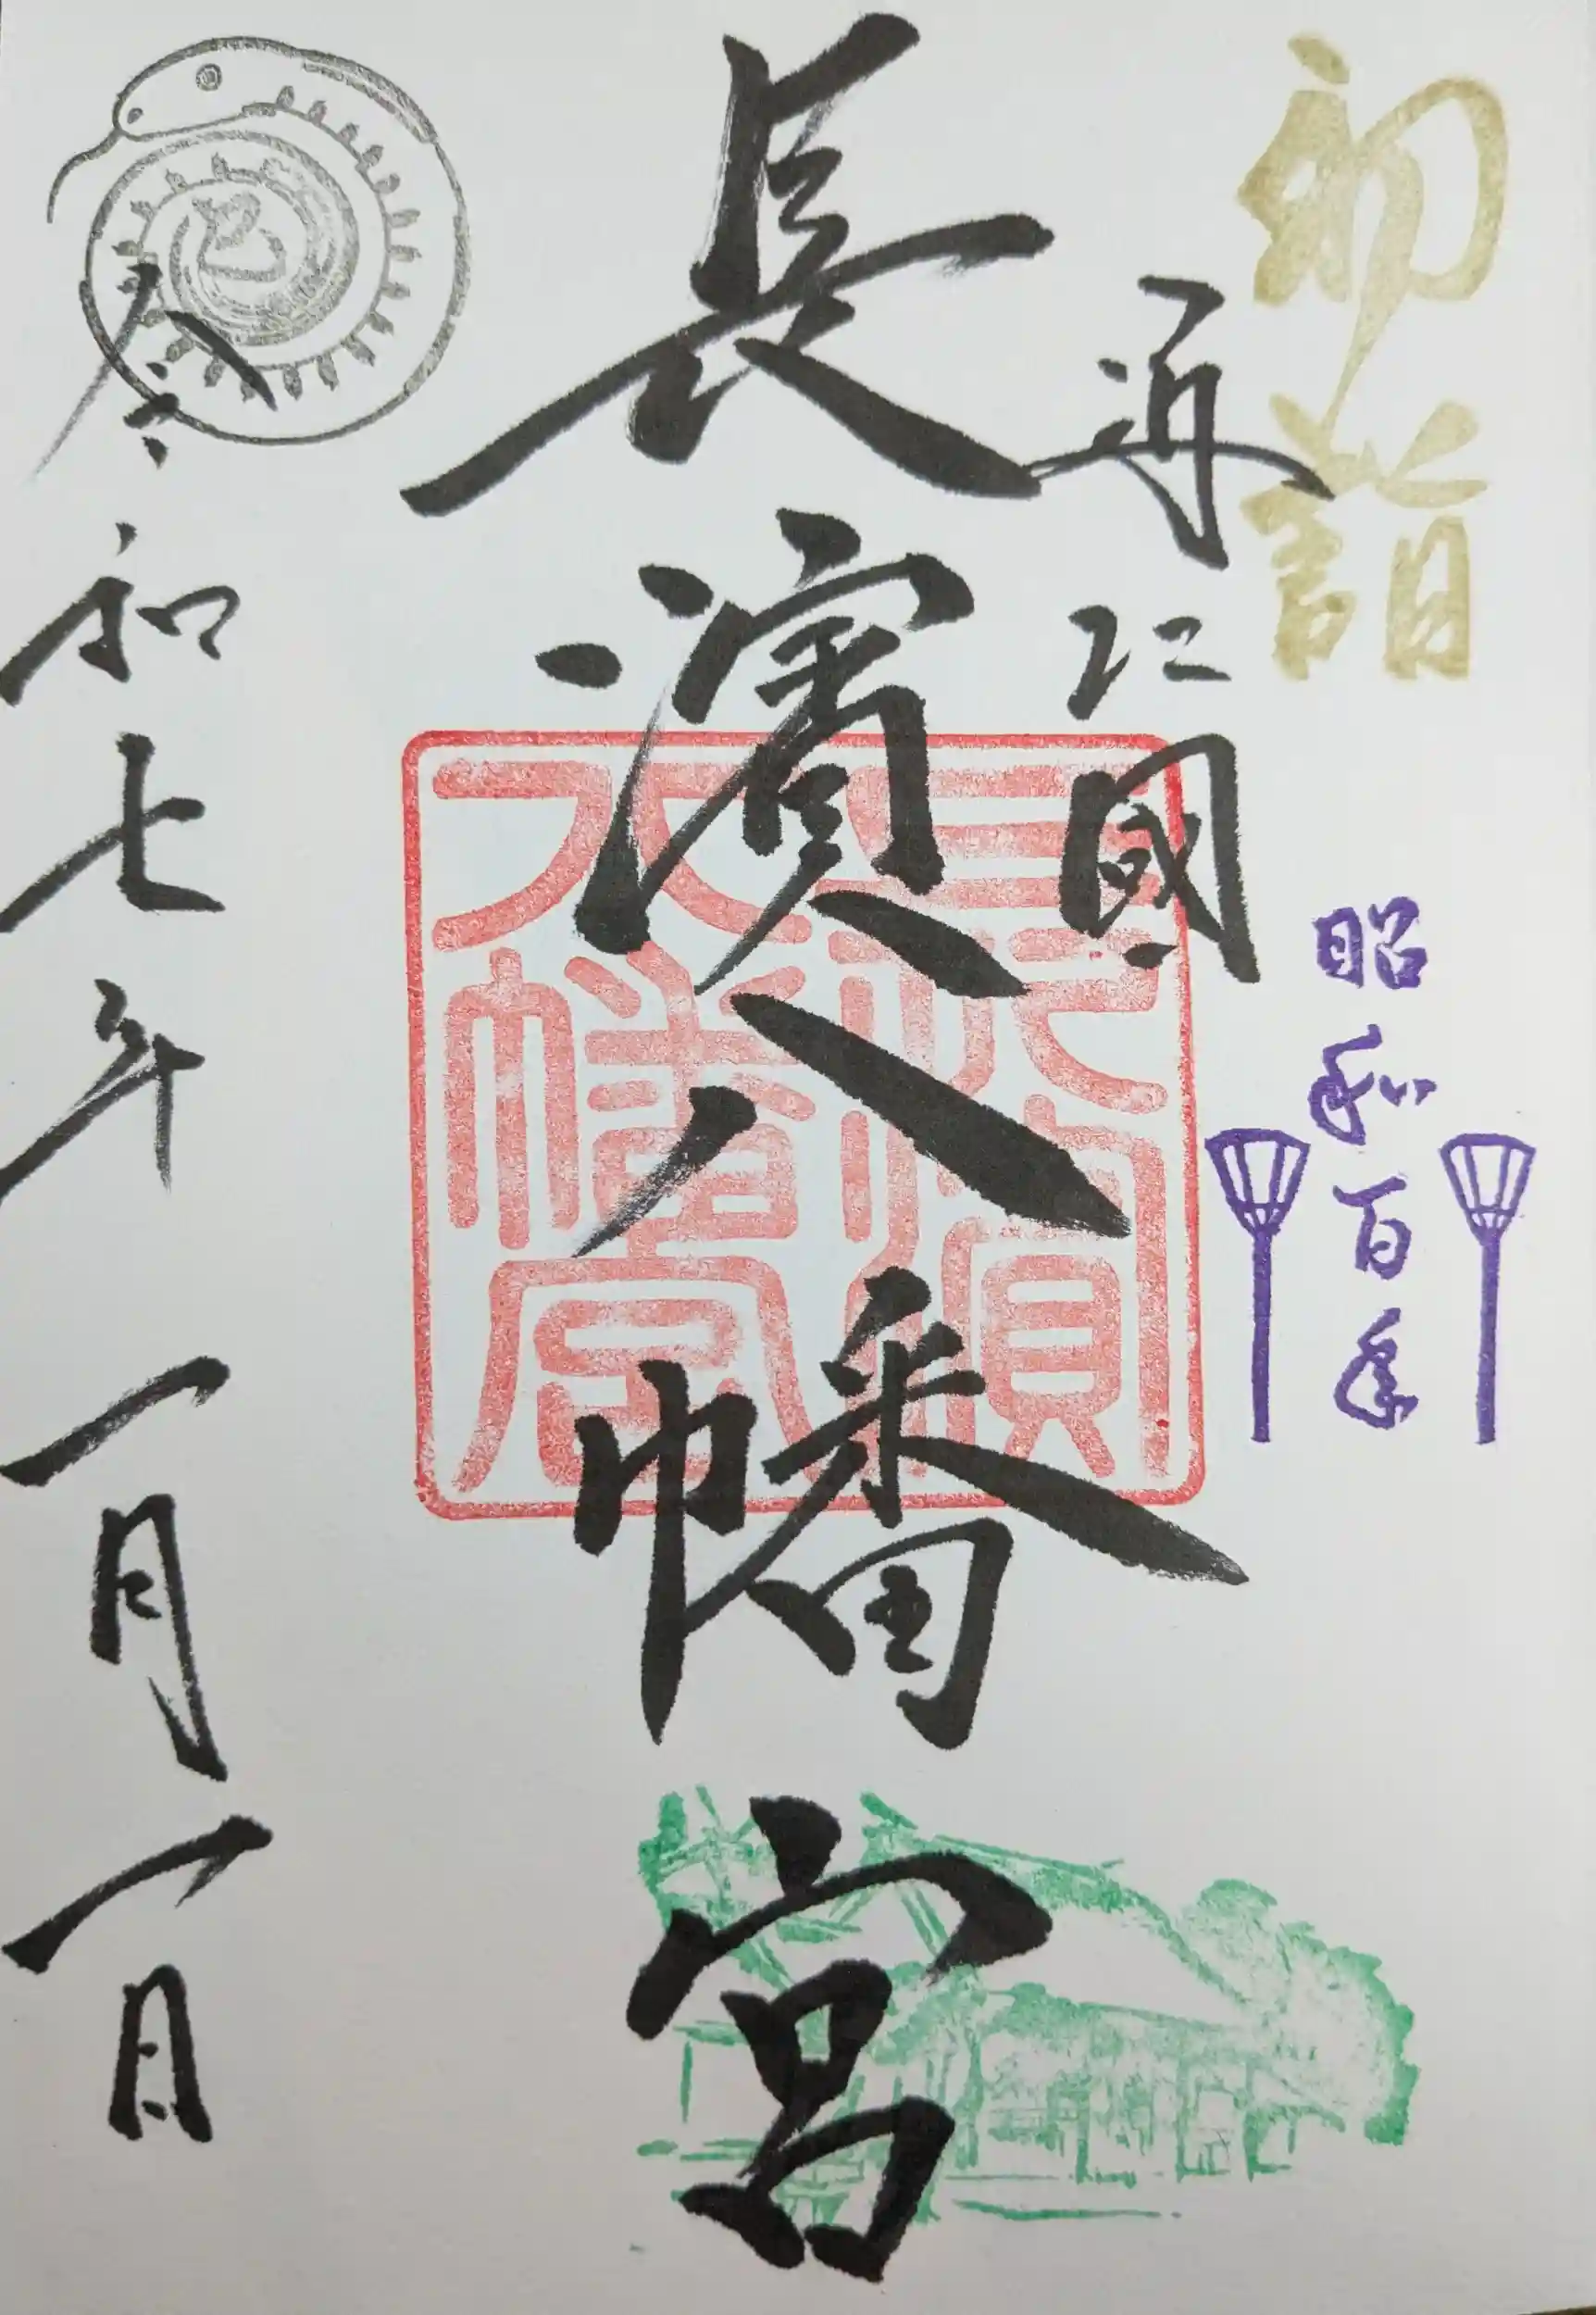 初詣
國
昭和百年
長濱八幡宮
長濱
八幡宮
巳
令和七年一月一日